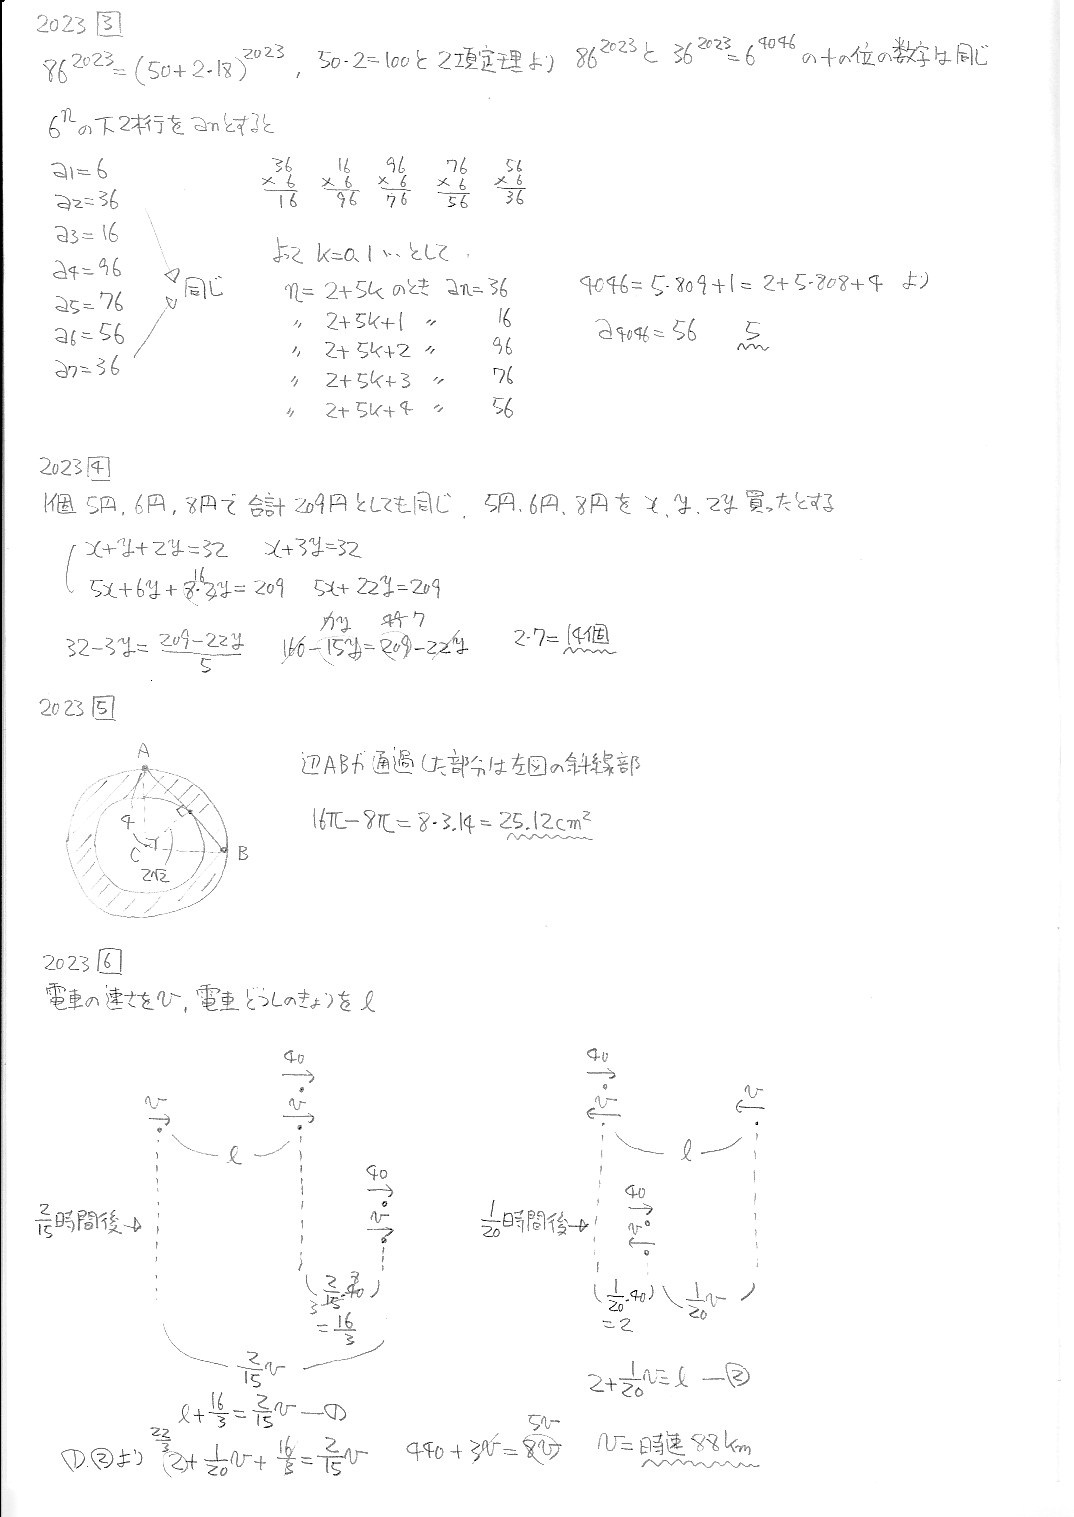 2023 3
86^2023=(50+2・18)^2023, 50・2=100と2項定理より 86^2023と 36^2023=6^4046 の十の位の数字は同じ
6^nの下2桁行をanとすると
a1=6
a2=36
a3=16
a4=96
a5=76
a6=56
a7=36
同じ
36 16 96 76 56
×6 ×6 ×6 ×6 ×6
16 96 76 56 36
よって k=0,1…として
n= 2+5k のとき an=36
〃 2+5k+1 〃 16
〃 2+5k+2 〃 96
〃 2+5k+3 〃 76
〃 2+5k+4 〃 56
4046=5・809+1=2+5・808+4 より
a4046=56 5
2023 4
1個 5円, 6円, 8円で 合計 209円としても同じ. 5円, 6円, 8円を x, y, 2y 買ったとする
x+y+2y=32 x+3y=32
5x+6y+8・2y=209 5x+22y=209
16
32-3y=209-22y/5 160-15y=209-22y 2・7=14個
7y 49 7
2023 5
A
4
C
2√2
B
辺ABが通過した部分は左図の斜線部
16π-8π=8・3.14=25.12cm²
2023 6
電車の速さをv, 電車どうしのきょりをl
40
v
v
l
40
v
2/15時間後→
2/15・40
=16/3
2/15v
l+16/3=2/15v ―①
40
v
v
l
40
v
1/20時間後→
1/20・40
=2
1/20v
2+1/20v=l ―②
①,②より 2+1/20v+16/3=2/15v 440+3v=8v v=時速88km
22/3
5v